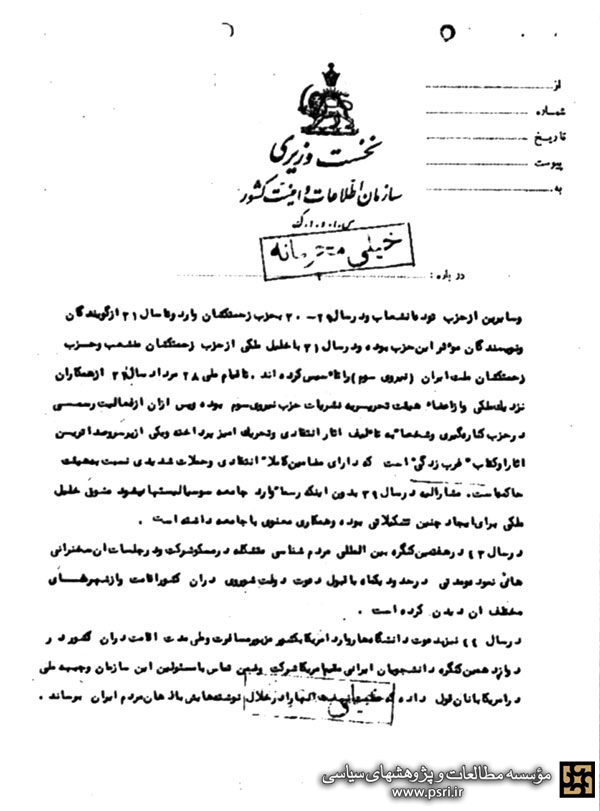 از
شماره
تاریخ
پیوست
به
نخست وزیری
سازمان اطلاعات و امنیت کشور
س.ا.و.ا.ک
خیلی محرمانه
درباره :
وسایرین از حزب توده انشعاب و در سال ۲۹ - ۳۰ بحزب زحمتکشان وارد و تا سال ۳۱ از گویندگان
و نویسندگان موثر این حزب بوده و در سال ۳۱ با خلیل ملکی از حزب زحمتکشان منشعب و حزب
زحمتکشان ملت ایران (نیروی سوم) را تاسیس کرده اند . تا قیام ملی ۲۸ مرداد سال ۳۲ از همکاران
نزدیك ملکی و از اعضاء هیئت تحریریه نشریات حزب نیروی سوم بوده و پس ازان از فعالیت رسمی
در حزب کناره گیری و شخصا به تالیف اثار انتقادی و تحریك امیز پرداخته و یکی از پر سروصداترین
اثار او کتاب "غرب زدگی" است که دارای مضامین کاملا انتقادی و حملات شدیدی نسبت به هیئت
حاکمه است . مشارالیه در سال ۳۹ بدون اینکه رسما وارد جامعه سوسیالیستها بشود مشوق خلیل
ملکی برای ایجاد چنین تشکیلاتی بوده و همکاری معنوی با جامعه داشته است .
در سال ۴۳ در هفتمین کنگره بین المللی مردم شناسی متشکله در مسکو شرکت و در جلسات ان سخنرانی
هائی نمود و مدتی در حدود یکماه با قبول دعوت دولت شوروی در ان کشور اقامت و از شهرهای
مختلف ان دیدن کرده است .
در سال ۴۴ نیز بدعوت دانشگاه هاروارد امریکا بکشور مزبور مسافرت و طی مدت اقامت در ان کشور در
دوازدهمین کنگره دانشجویان ایرانی مقیم امریکا شرکت و ضمن تماس با مسئولین این سازمان و جبهه ملی
در امریکا بانان قول داده که آنها را در خلال نوشته هایش باذهان مردم ایران برساند .
خیلی
مؤسسه مطالعات و پژوهشهای سیاسی
www.psri.ir